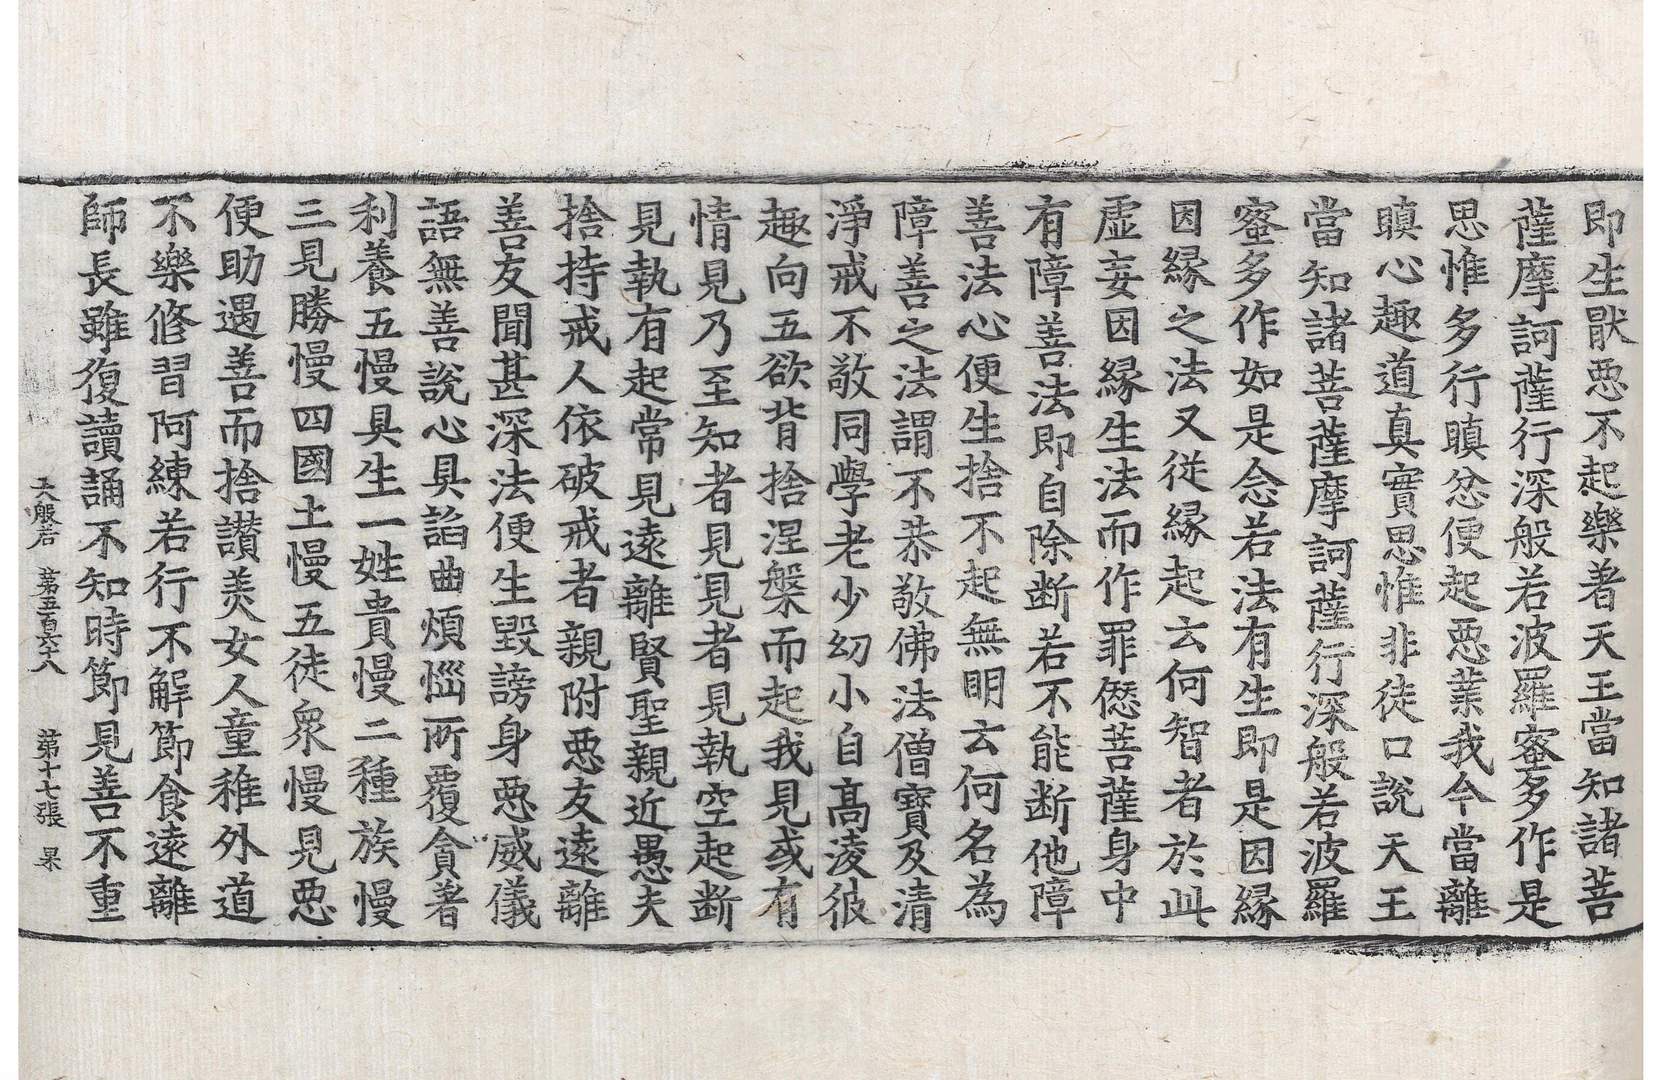 即生猒惡不起樂著天王當知諸菩
薩摩訶薩行深般若波羅蜜多作是
思惟多行瞋忿便起惡業我今當離
瞋心趣道真實思惟非徒口說天王
當知諸菩薩摩訶薩行深般若波羅
蜜多作如是念若法有生即是因縁
因縁之法又從縁起云何智者於此
虛妄因縁生法而作罪𠎝菩薩身中
有障善法即自除断若不能断他障
善法心便生捨不起無明云何名為
障善之法謂不恭敬佛法僧寶及清
淨戒不敬同學老少幼小自髙凌彼
趣向五欲背捨涅槃而起我見或有
情見乃至知者見見者見執空起断
見執有起常見遠離賢聖親近愚夫
捨持戒人依破戒者親附惡友遠離
善友聞甚深法便生毀謗身惡威儀
語無善說心具諂曲煩惱所覆貪著
利養五慢具生一姓貴慢二種族慢
三見勝慢四國土慢五徒衆慢見惡
便助遇善而捨讃美女人童稚外道
不樂修習阿練若行不解節食遠離
師長雖復讀誦不知時節見善不重
大般若 第五百六十八 第十七張 杲